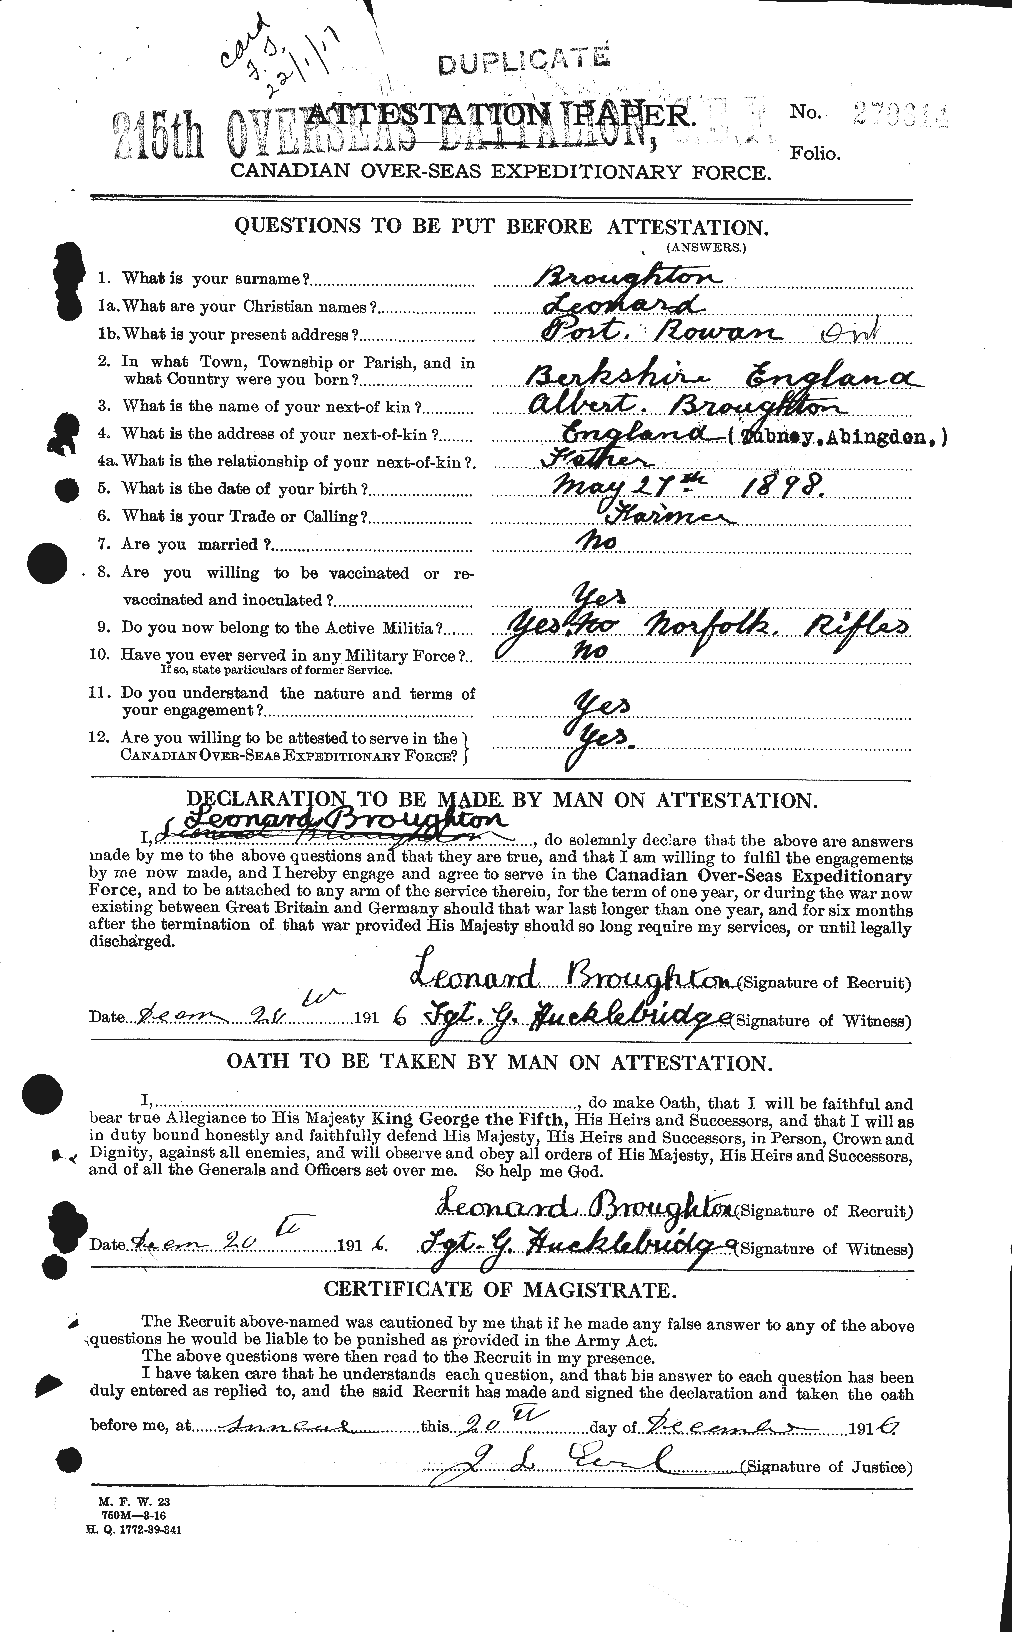 card
22/1/17
DUPLICATE
215th OVERSEAS BATTALION, C.E.F.
ATTESTATION PAPER.
No.
Folio.
CANADIAN OVER-SEAS EXPEDITIONARY FORCE.
QUESTIONS TO BE PUT BEFORE ATTESTATION.
(ANSWERS.)
1. What is your surname? Broughton
1a. What are your Christian names? Leonard
1b. What is your present address? Port. Rowan Ont
2. In what Town, Township or Parish, and in
what Country were you born? Berkshire England
3. What is the name of your next-of kin? Albert. Broughton
4. What is the address of your next-of-kin? England (Tubney, Abingdon,)
4a. What is the relationship of your next-of-kin? Father
5. What is the date of your birth? May 27th 1898.
6. What is your Trade or Calling? Farmer
7. Are you married? No
8. Are you willing to be vaccinated or re-
vaccinated and inoculated? Yes
9. Do you now belong to the Active Militia? Yes. No Norfolk. Rifles
10. Have you ever served in any Military Force? No
If so, state particulars of former Service.
11. Do you understand the nature and terms of
your engagement? Yes
12. Are you willing to be attested to serve in the
CANADIAN OVER-SEAS EXPEDITIONARY FORCE? Yes.
DECLARATION TO BE MADE BY MAN ON ATTESTATION.
Leonard Broughton
I, Leonard Broughton, do solemnly declare that the above are answers
made by me to the above questions and that they are true, and that I am willing to fulfil the engagements
by me now made, and I hereby engage and agree to serve in the Canadian Over-Seas Expeditionary
Force, and to be attached to any arm of the service therein, for the term of one year, or during the war now
existing between Great Britain and Germany should that war last longer than one year, and for six months
after the termination of that war provided His Majesty should so long require my services, or until legally
discharged.
Leonard Broughton (Signature of Recruit)
Date 20th 1916 Sgt. G. Hucklebridge (Signature of Witness)
OATH TO BE TAKEN BY MAN ON ATTESTATION.
I, , do make Oath, that I will be faithful and
bear true Allegiance to His Majesty King George the Fifth, His Heirs and Successors, and that I will as
in duty bound honestly and faithfully defend His Majesty, His Heirs and Successors, in Person, Crown and
Dignity, against all enemies, and will observe and obey all orders of His Majesty, His Heirs and Successors,
and of all the Generals and Officers set over me. So help me God.
Leonard Broughton (Signature of Recruit)
Date 20th 1916. Sgt. G. Hucklebridge (Signature of Witness)
CERTIFICATE OF MAGISTRATE.
The Recruit above-named was cautioned by me that if he made any false answer to any of the above
questions he would be liable to be punished as provided in the Army Act.
The above questions were then read to the Recruit in my presence.
I have taken care that he understands each question, and that his answer to each question has been
duly entered as replied to, and the said Recruit has made and signed the declaration and taken the oath
before me, at this 20th day of December 1916
(Signature of Justice)
M. F. W. 23
760M—8-16
H. Q. 1772-39-841